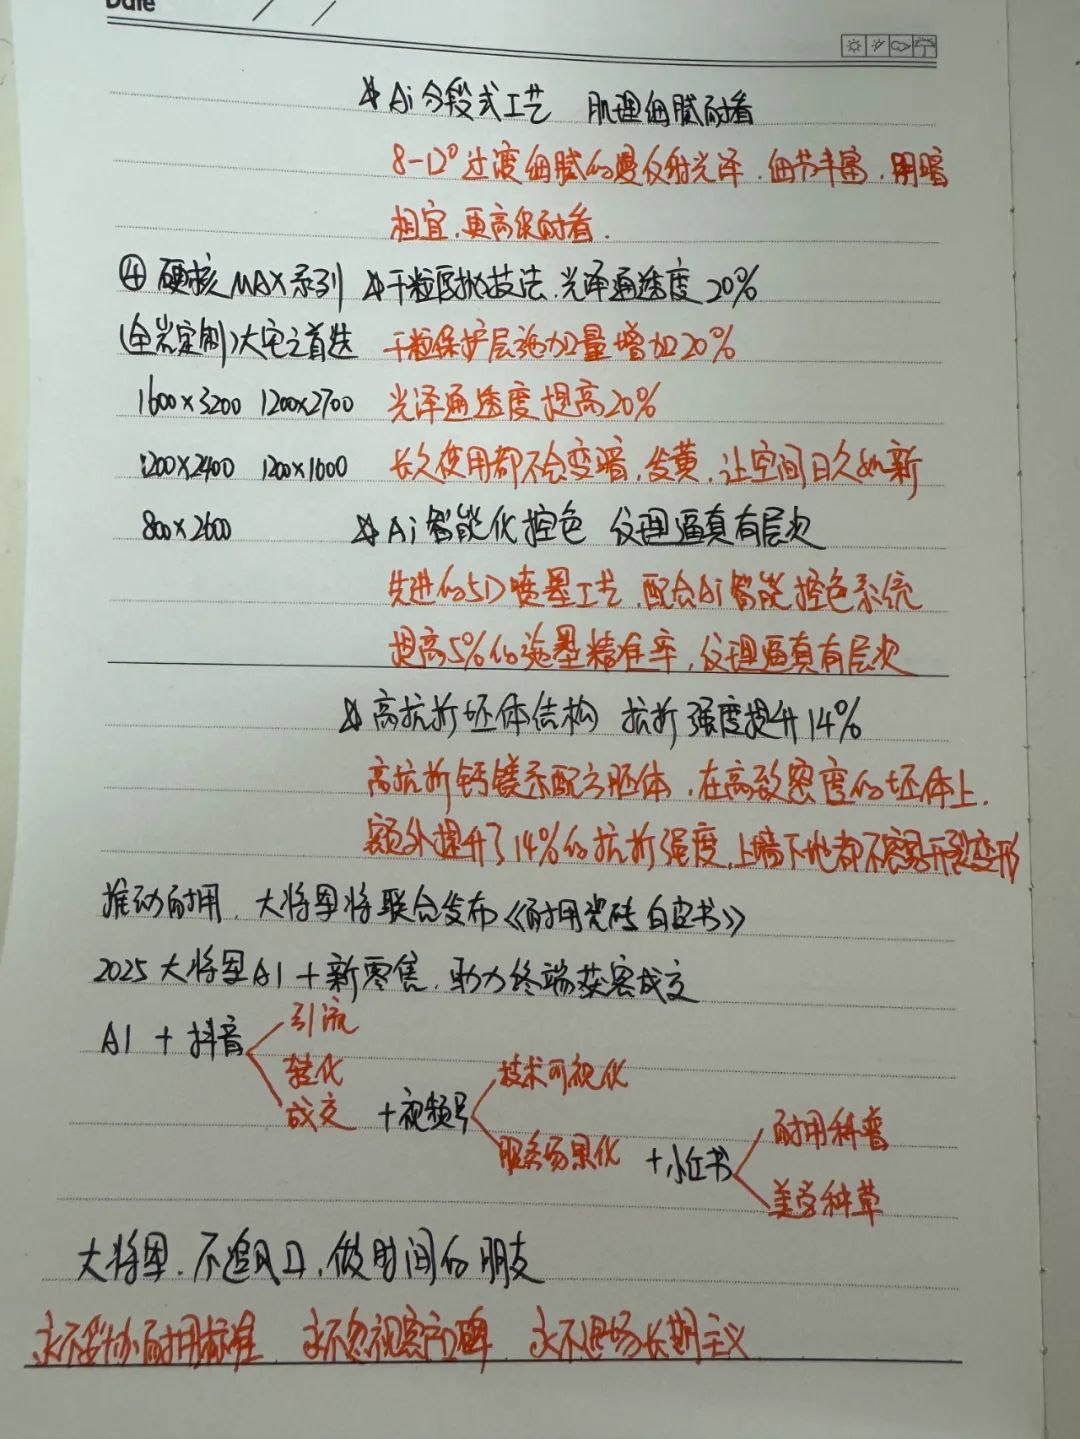 Date
☆ Ai分段式工艺 肌理细腻耐看
8-12°过渡细腻的漫反射光泽.细节丰富.明暗
相宜.更高级耐看.
④ 硬核MAX系列 ☆干粒配抛技法.光泽通透度20%
(全岩定制)大宅之首选 干粒保护层施加量增加20%
1600×3200 1200×2700 光泽通透度提高20%
1200×2400 1200×1600 长久使用都不会变暗.发黄.让空间日久如新
800×2600 ☆Ai智能化控色 纹理逼真有层次
先进的5D喷墨工艺.配合Ai智能控色系统
提高5%的施墨精准率,纹理逼真有层次
☆高抗折坯体结构 抗折强度提升14%
高抗折钙镁系配方胚体.在高致密度的坯体上.
额外提升了14%的抗折强度,上墙下地都不容易开裂变形
推动耐用.大将军将联合发布《耐用瓷砖白皮书》
2025大将军AI+新零售.助力终端获客成交
AI + 抖音 引流
转化
成交 +视频号 技术可视化
服务场景化 +小红书 耐用科普
美学种草
大将军.不追风口.做时间的朋友
永不妥协耐用标准 永不忽视客户口碑 永不退场长期主义